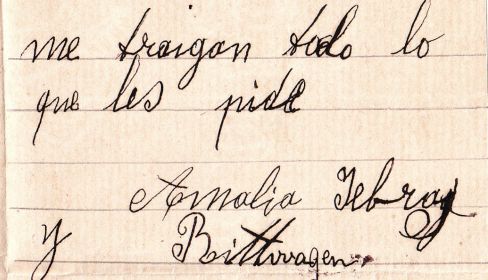 me traigan todo lo
que les pide
Amalia Tebray
y Rittwagen.